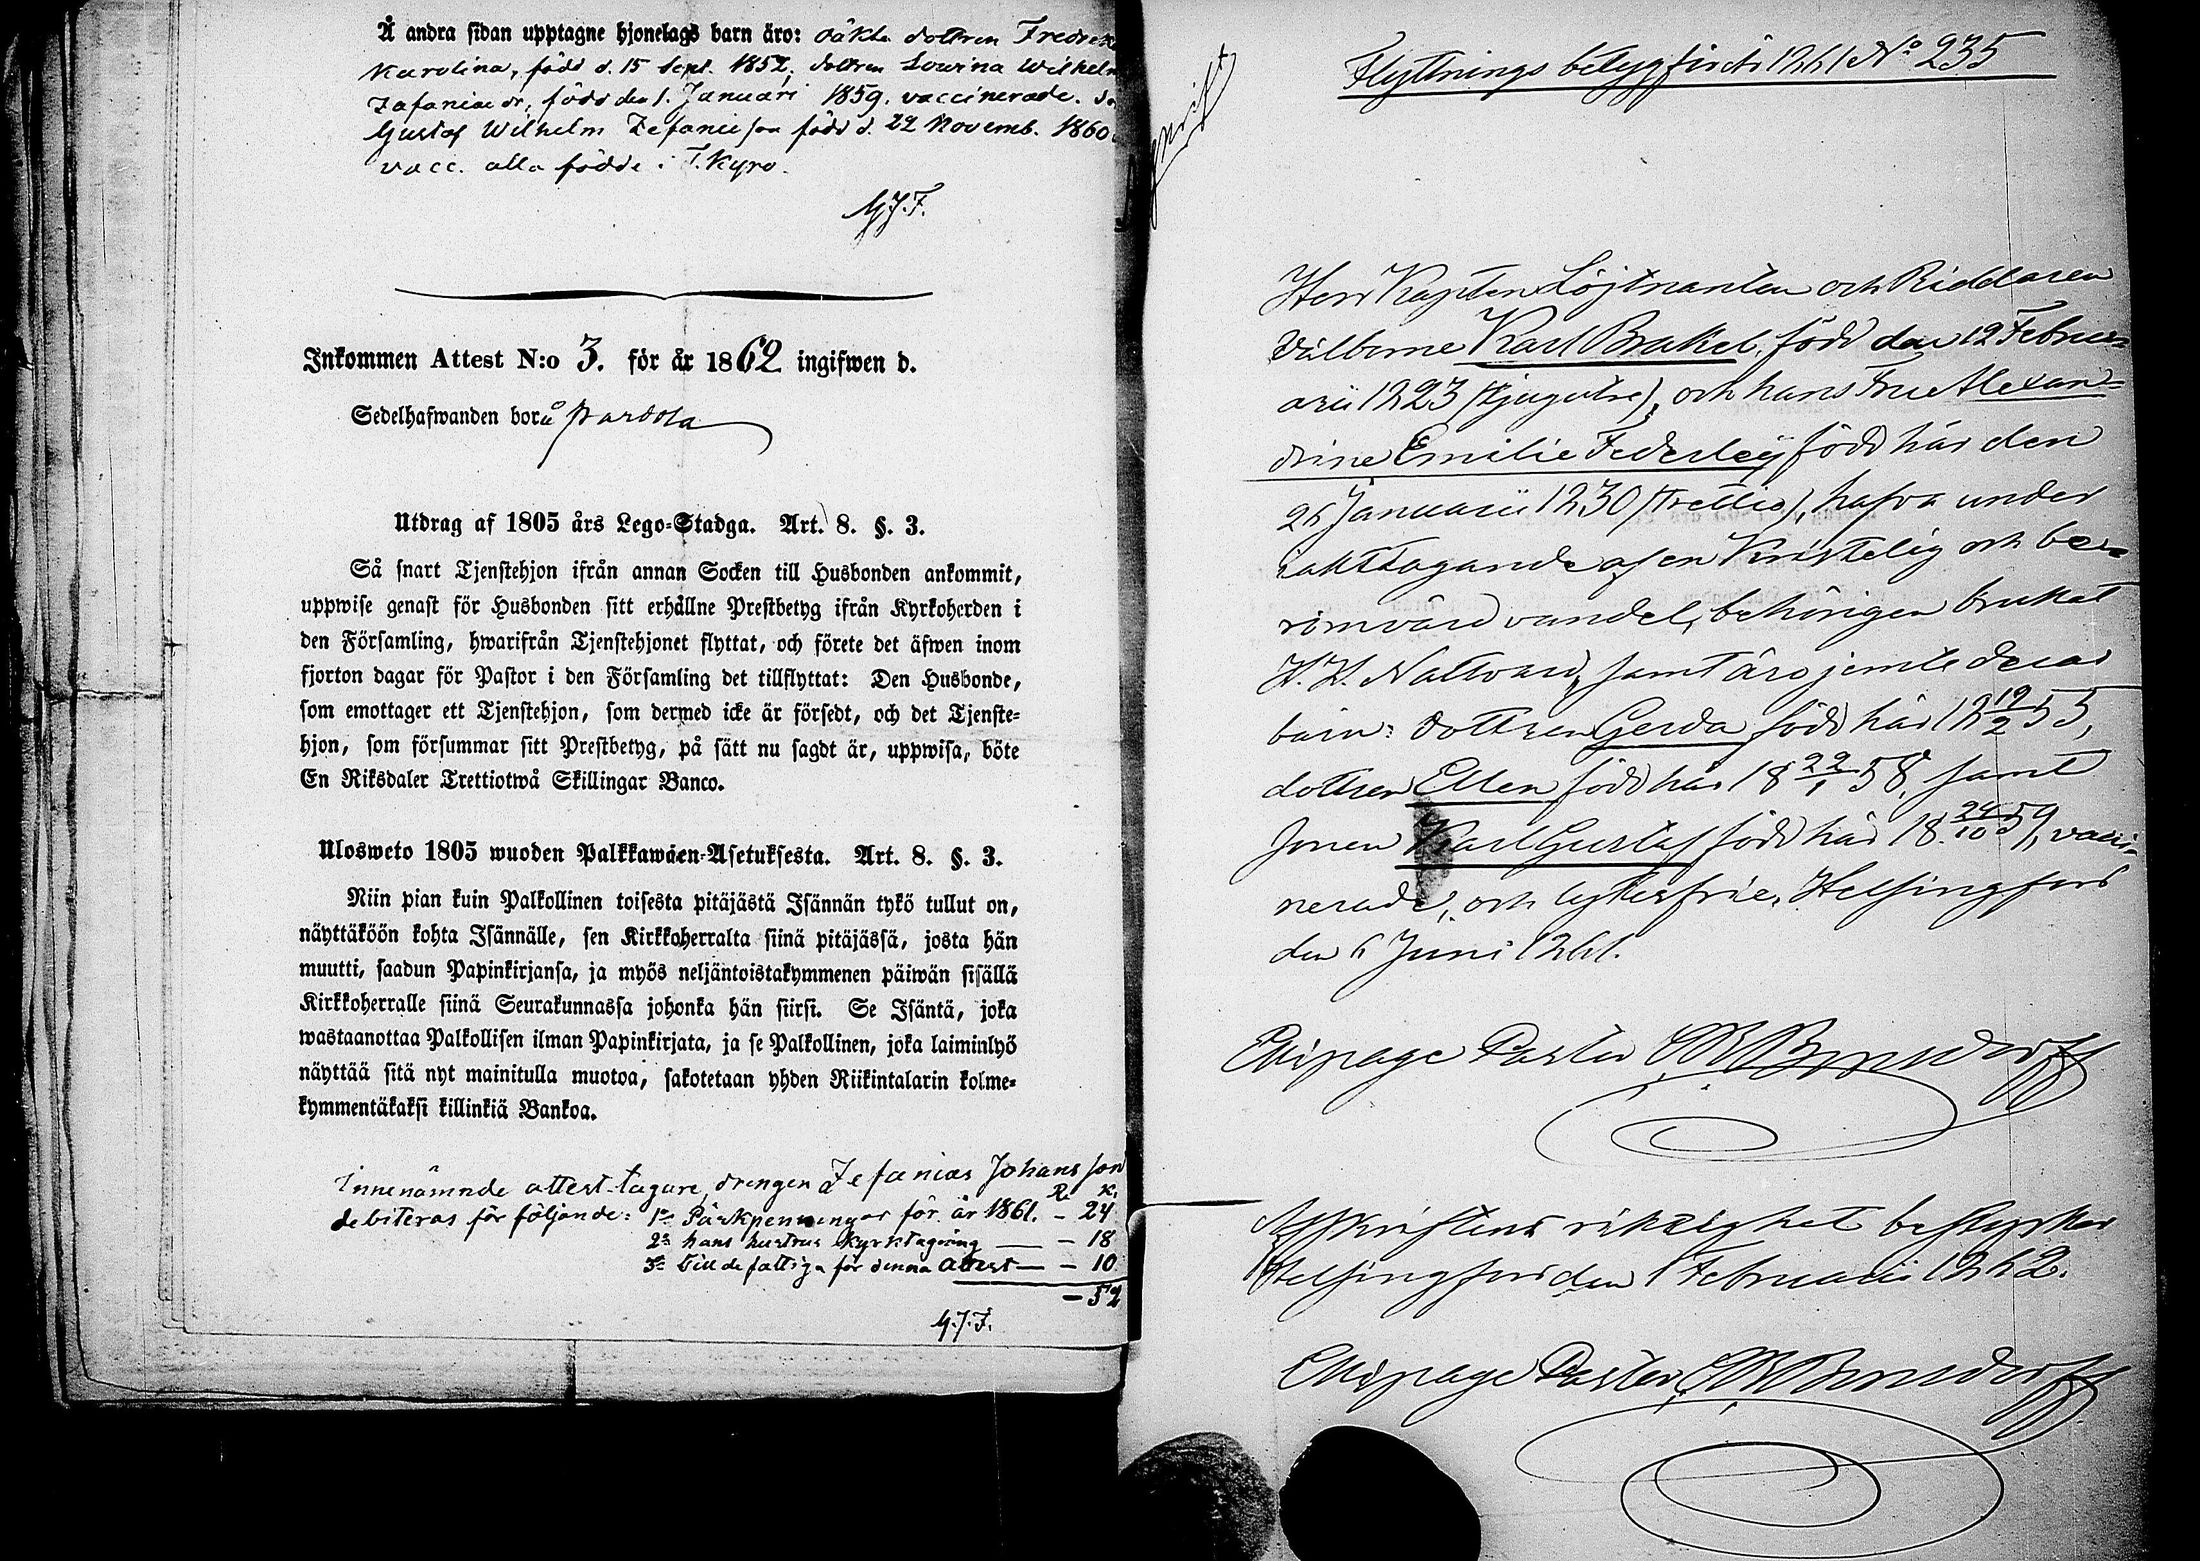 Å andra sidan upptagne hjonelags barn äro: oäkta dottren Fredrika
Karolina, född d. 15 Sept. 1852. dottren Lowina Wilhelm
Zafaniae dr, född den 1. Januari 1859. vaccinerade.
Gustaf Wilhelm Zefanie son född d. 22 Novemb. 1860
vacc. alla födde i T. Kyro.
G.J.F.
Inkommen Attest N:o 3. för år 1862 ingifwen d.
Sedelhafwanden bor å
Utdrag af 1805 års Lego-Stadga. Art. 8. §. 3.
Så snart Tjenstehjon ifrån annan Socken till Husbonden ankommit,
uppwise genast för Husbonden sitt erhållne Prestbetyg ifrån Kyrkoherden i
den Församling, hwarifrån Tjenstehjonet flyttat, och förete det äfwen inom
fjorton dagar för Pastor i den Församling det tillflyttat: Den Husbonde,
som emottager ett Tjenstehjon, som dermed icke är försedt, och det Tjenste-
hjon, som försummar sitt Prestbetyg, på sätt nu sagdt är, uppwisa, böte
En Riksdaler Trettiotwå Skillingar Banco.
Ulosweto 1805 wuoden Palkkawäen-Asetuksesta. Art. 8. §. 3.
Niin pian kuin Palkollinen toisesta pitäjästä Isännän tykö tullut on,
näyttäköön kohta Isännälle, sen Kirkkoherralta siinä pitäjässä, josta hän
muutti, saadun Papinkirjansa, ja myös neljäntoistakymmenen päiwän sisällä
Kirkkoherralle siinä Seurakunnassa johonka hän siirsi. Se Isäntä, joka
wastaanottaa Palkollisen ilman Papinkirjata, ja se Palkollinen, joka laiminlyö
näyttää sitä nyt mainitulla muotoa, sakotetaan yhden Riikintalarin kolme-
kymmentäkaksi killinkiä Bankoa.
Innenämnde attest-tagare, drengen Zefanias Johansson
R. K.
debiteras för följande: 1o Påskpenningar för år 1861. – 24
2o hans hustrus kyrktagning — – 18
3o till de fattiga för denna attest — – 10
– 52
G.J.F.
Flyttnings betyg för år 1861 No 235
Herr Kapten Löjtnanten och Riddaren
Välborne Karl Brakel, född den 12 Febru-
arii 1823 (tjugutre), och hans Fru Alexan-
drine Emilie Federley född här den
26 Januarii 1830 (trettio), hafva under
iakttagande af en Kristelig och be-
römvärd vandel, behörigen brukat
H. H. Nattvard, samt äro jemte deras
barn: dottren Gerda född här 18 19/2 55,
dottren Ellen född här 18 22/1 58, samt
sonen Karl Gustaf född här 18 24/10 59, vacci-
nerade, och lytesfrie. Helsingfors
den 6 Juni 1861.
Ekipage Pastor
Afskriftens riktighet bestyrker
Helsingfors den 1 Februarii 1862.
Ekipage Pastor